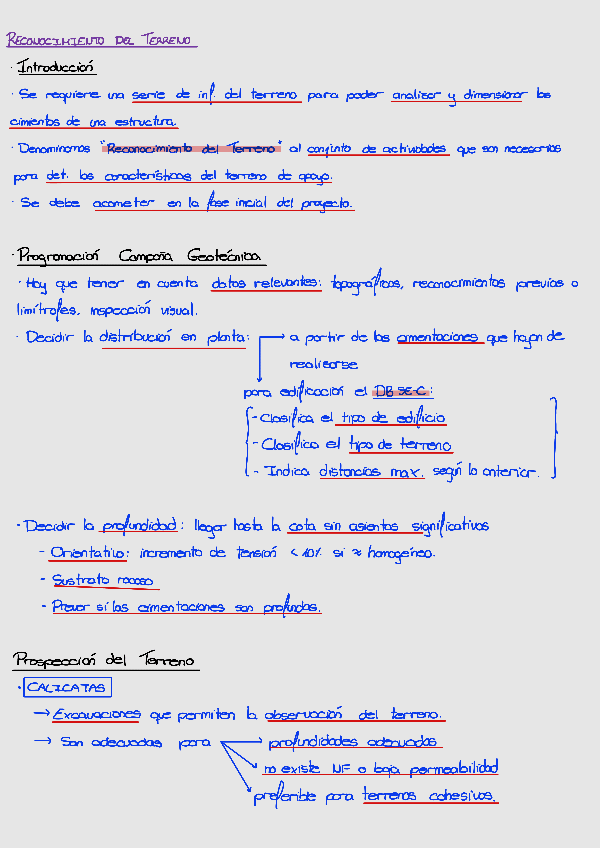 RECONOCIMIENTO DEL TERRENO
· Introducción
· Se requiere una serie de inf. del terreno para poder analizar y dimensionar los
cimientos de una estructura.
· Denominamos "Reconocimiento del Terreno" al conjunto de actividades que son necesarias
para det. las características del terreno de apoyo.
· Se debe acometer en la fase inicial del proyecto.
· Programación Campaña Geotécnica
· Hay que tener en cuenta datos relevantes: topográficos, reconocimientos previos o
limítrofes, inspección visual.
· Decidir la distribución en planta: → a partir de las cimentaciones que hayan de
realizarse
para edificación el DB SE-C:
- Clasifica el tipo de edificio
- Clasifica el tipo de terreno
- Indica distancias max. según lo anterior.
· Decidir la profundidad: llegar hasta la cota sin asientos significativos
- Orientativo: incremento de tensión <10% si ≈ homogéneo.
- Sustrato rocoso
- Prever si las cimentaciones son profundas.
Prospección del Terreno
· CALICATAS
→ Excavaciones que permiten la observación del terreno.
→ Son adecuadas para → profundidades adecuadas
no existe NF o baja permeabilidad
preferible para terrenos cohesivos.